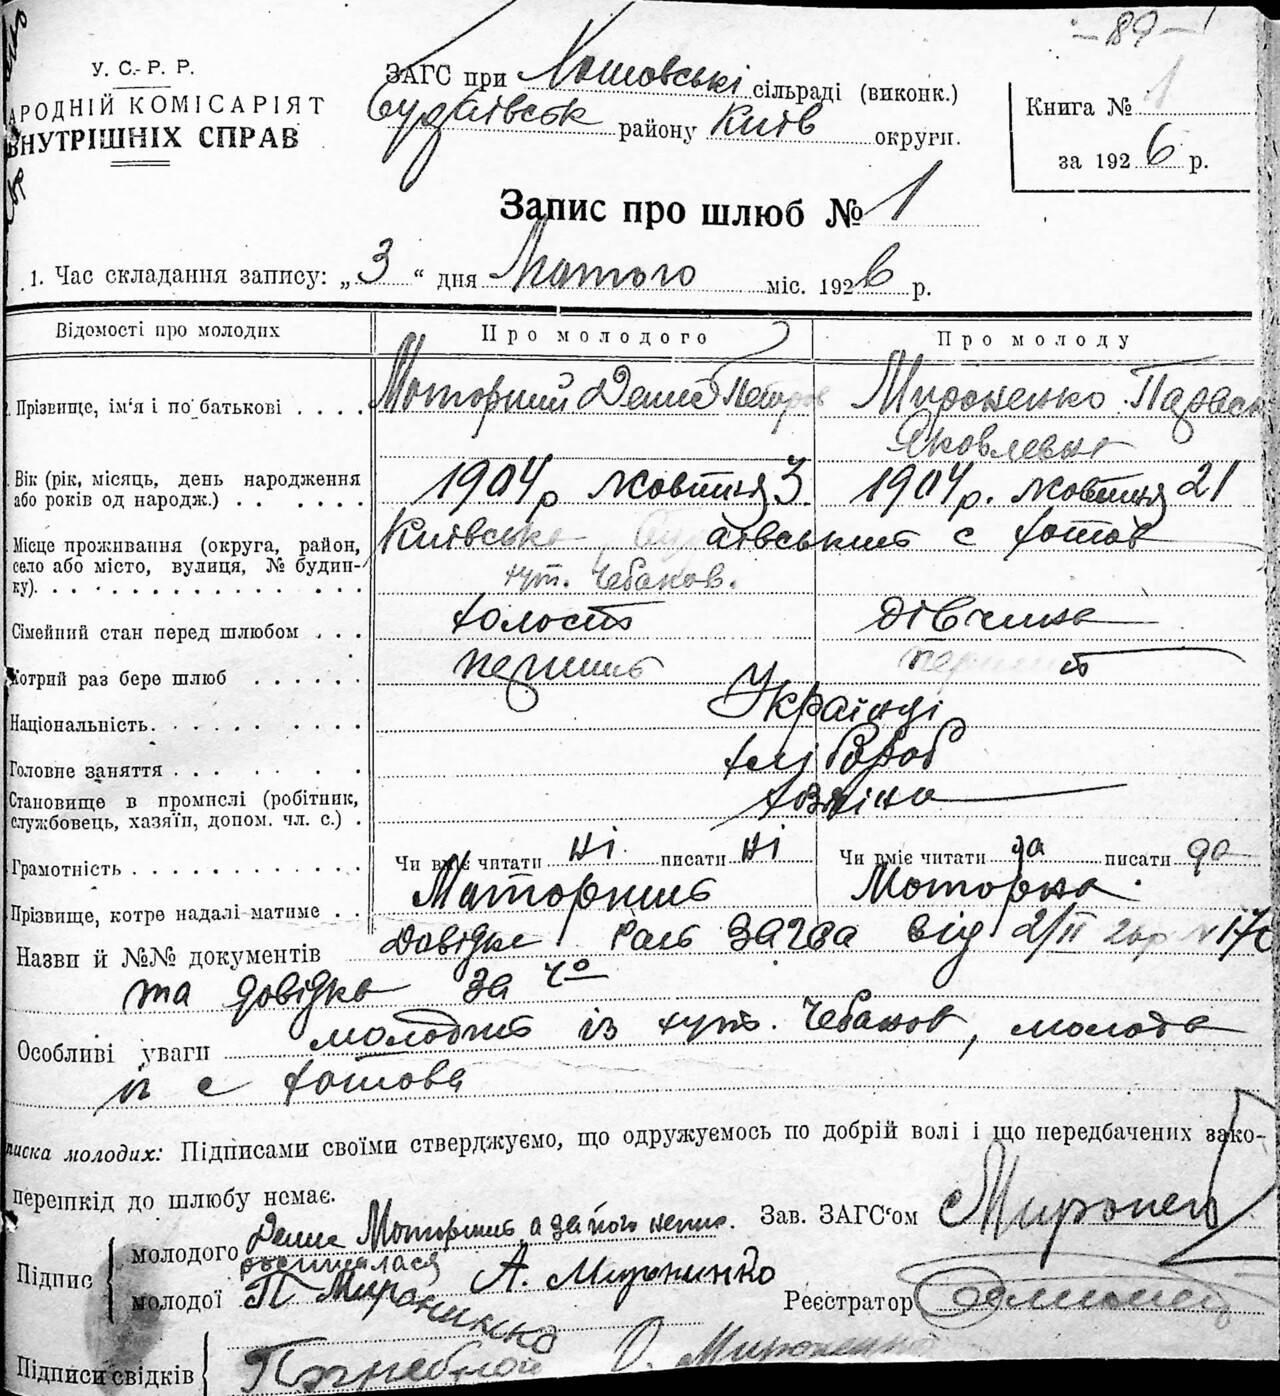 – 89 –
У. С.- Р. Р.
АРОДНІЙ КОМІСАРІЯТ
ВНУТРІШНІХ СПРАВ
ЗАГС при Хотовські сільраді (виконк.)
Будаївськ району Київ округи.
Книга № 1
за 1926 р.
Запис про шлюб № 1
1. Час складання запису: „ 3 “ дня Лютого міс. 1926 р.
Відомості про молодих
Про молодого
Про молоду
Прізвище, ім'я і по батькові . . . .
Моторний Демид Петров
Мироненко Параск
Яковлевна
Вік (рік, місяць, день народження або років од народж.) . . . . . .
1904 р жовтня 3
1904 р. жовтня 21
Місце проживання (округа, район, село або місто, вулиця, № будин-ку). . . . . . . . . . . . . . .
Київська Будаївський с Хотов
хут. Чебанов.
Сімейний стан перед шлюбом . . .
холост
дівчина
Котрий раз бере шлюб . . . . . .
перший
перший
Національність. . . . . . . . . .
Українці
Головне заняття . . . . . . . .
хлібороб
Становище в промислі (робітник, службовець, хазяїн, допом. чл. с.) .
хозяїна
Грамотність . . . . . . . . . . . .
Чи вміє читати ні писати ні
Чи вміє читати да писати да
Прізвище, котре надалі матиме . .
Моторний
Моторна.
Назви й №№ документів Довідка Рай загса від 2/II 26р № 170
та довідка за ч°
Особливі уваги молодий із хут. Чебанов, молода
із с Хотова
писка молодих: Підписами своїми стверджуємо, що одружуємось по добрій волі і що передбачених зако-
перешкід до шлюбу немає.
Підпис
молодого Демид Моторний а за його непис.
росписалася
молодої П Мироненко А. Мироненко
Зав. ЗАГС'ом
Реєстратор
Підписи свідків
О. Мироненко